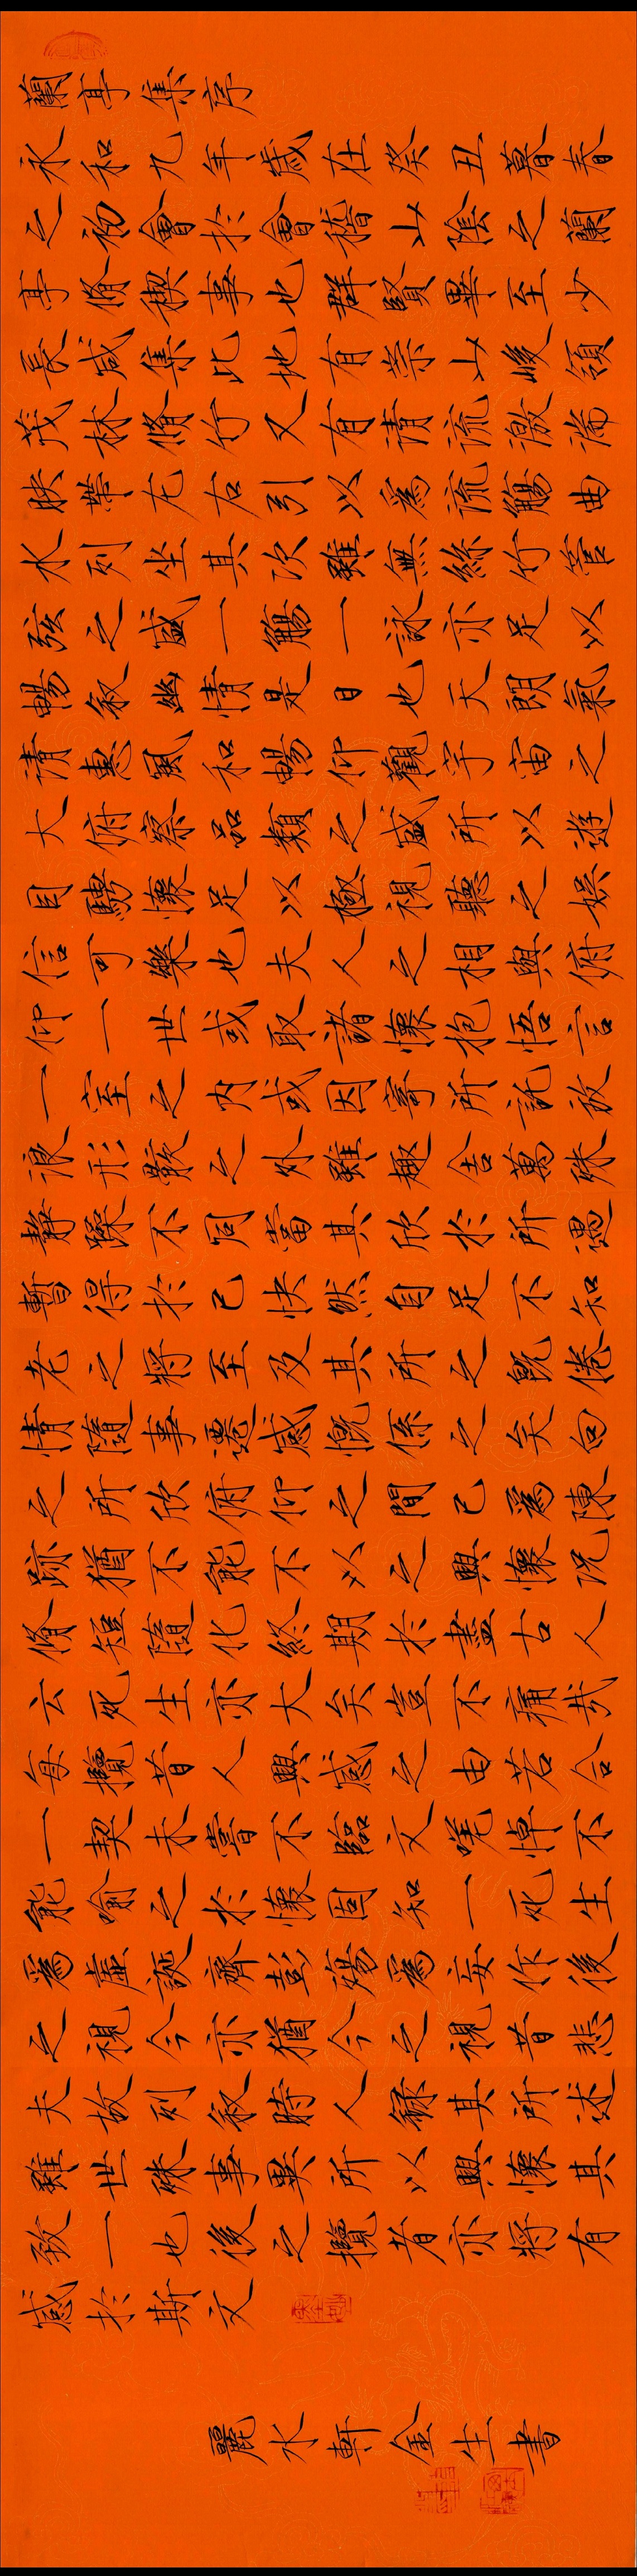 蘭亭集序
永和九年歲在癸丑暮春
之初會於會稽山陰之蘭
亭脩稧事也群賢畢至少
長咸集此地有崇山峻領
茂林脩竹又有清流激湍
映帶左右引以爲流觴曲
水列坐其次雖無絲竹管
弦之盛一觴一詠亦足以
暢敘幽情是日也天朗氣
清惠風和暢仰觀宇宙之
大俯察品類之盛所以遊
目騁懷足以極視聽之娛
信可樂也夫人之相與俯
仰一世或取諸懷抱悟言
一室之內或因寄所託放
浪形骸之外雖趣舍萬殊
靜躁不同當其欣於所遇
暫得於己快然自足不知
老之將至及其所之既倦
情隨事遷感慨係之矣向
之所欣俯仰之間已爲陳
跡猶不能不以之興懷況
脩短隨化終期於盡古人
云死生亦大矣豈不痛哉
每攬昔人興感之由若合
一契未嘗不臨文嗟悼不
能喻之於懷固知一死生
爲虛誕齊彭殤爲妄作後
之視今亦猶今之視昔悲
夫故列敘時人錄其所述
雖世殊事異所以興懷其
致一也後之攬者亦將有
感於斯文
麗水軒金生書